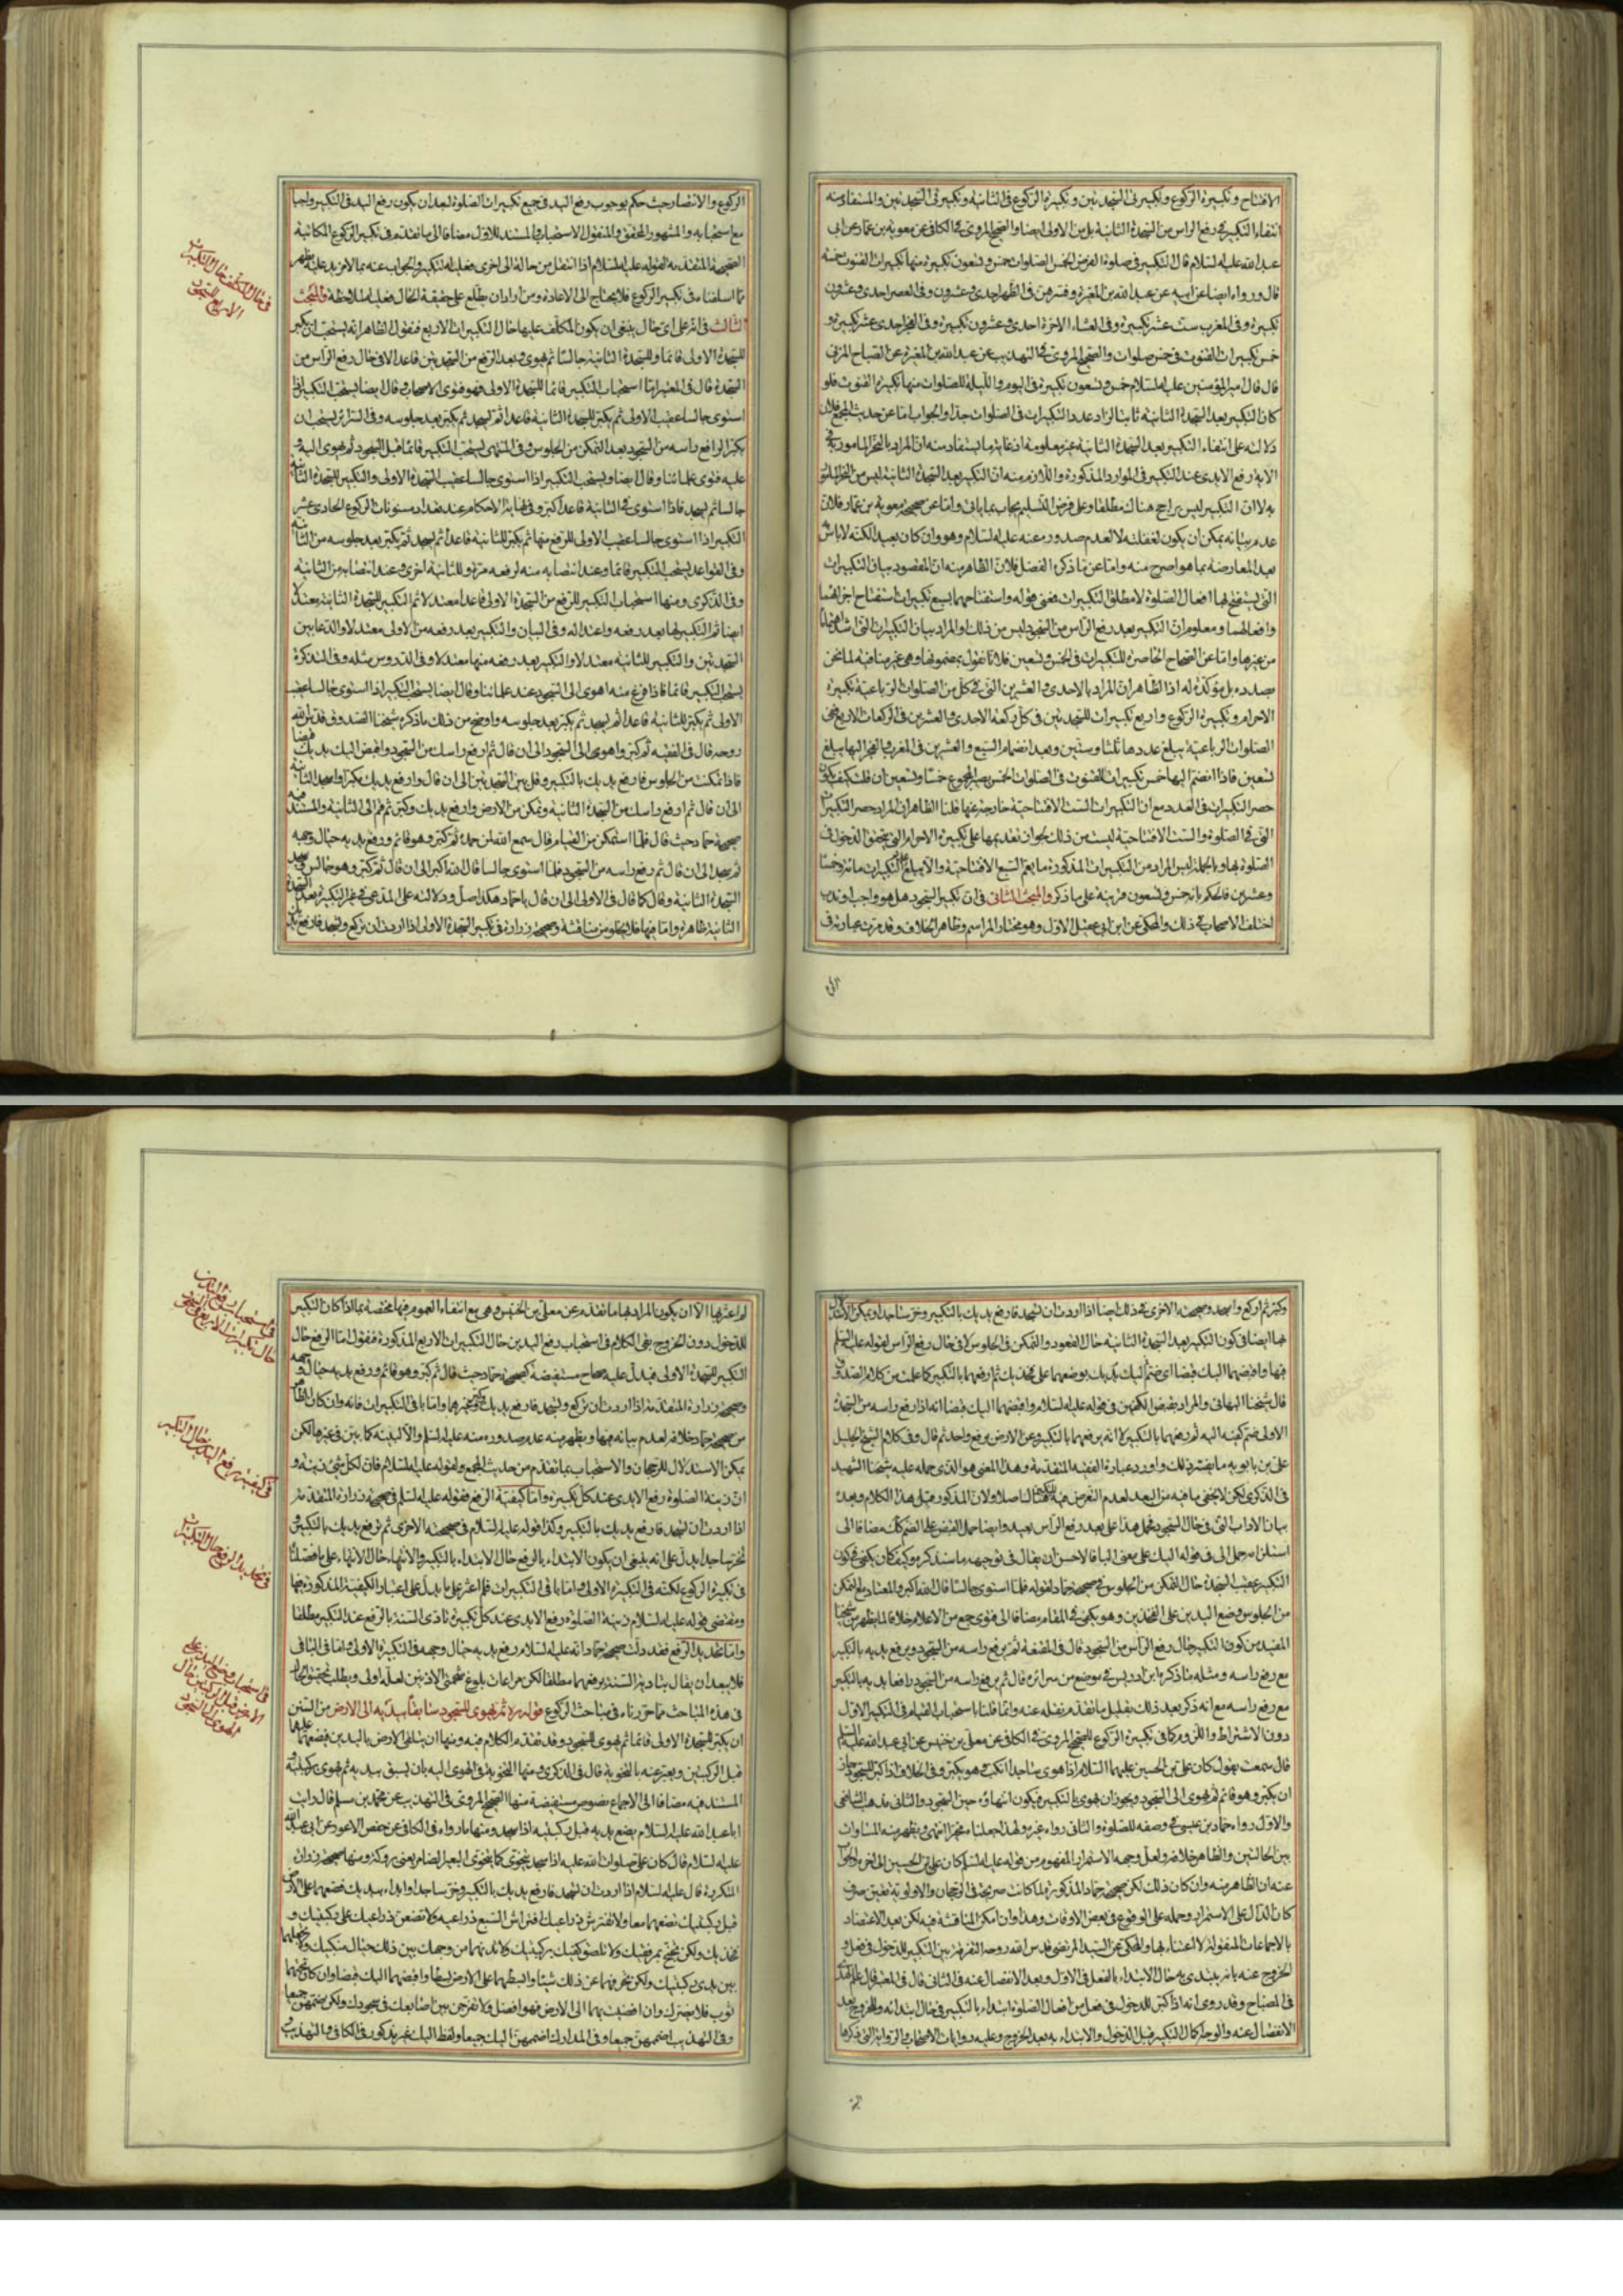 الافتتاح و تكبيرة الركوع و تكبيرتى السجدتين و تكبيرة الركوع فى الثانية و تكبيرتى السجدتين والمستفاد منه
انتفاء التكبير فى رفع الراس من السجدة الثانية بل من الاولى ايضا والصحيح المروى فى الكافى عن معوية بن عمار عن ابى
عبد الله عليه السلام قال التكبير فى صلوة الفرض الخمس الصلوات خمس و تسعون تكبيرة منها تكبيرات القنوت خمسة
قال و رواه ايضا عن ابيه عن عبد الله بن المغيرة و فسرهن فى الظهر احدى و عشرون و فى العصر احدى و عشرون
تكبيرة و فى المغرب ست عشر تكبيرة و فى العشاء الاخرة احدى و عشرون تكبيرة و فى الفجر احدى عشر تكبيرة و
خمس تكبيرات القنوت فى خمس صلوات والصحيح المروى فى التهذيب عن عبد الله بن المغيرة عن الصباح المزنى
قال قال امير المؤمنين عليه السلام خمس و تسعون تكبيرة فى اليوم و الليلة للصلوات منها تكبيرة القنوت فلو
كان التكبير بعد السجدة الثانية ثابتا لزاد عدد التكبيرات فى الصلوات جدا والجواب اما عن حديث المجمع فلان
دلالته على انتفاء التكبير بعد السجدة الثانية غير معلومة اذ غاية ما يستفاد منه ان المراد بالنحر المامور به فى
الاية رفع الايدى عند التكبير فى الموارد المذكورة واللازم منه ان التكبير بعد السجدة الثانية ليس من النحر المامور
به لا ان التكبير ليس براجح هناك مطلقا و على فرض التسليم يجاب بما ياتى و اما عن صحيحة معوية بن عمار فلان
عدم بيانه يمكن ان يكون لغفلته لا لعدم صدوره عنه عليه السلام و هو و ان كان بعيدا لكنه لا باس به
بعد المعارضة بما هو اصرح منه و اما عن ما ذكره الفضل فلان الظاهر منه ان المقصود بيان التكبيرات
التى يستفتح بها افعال الصلوة لا مطلق التكبيرات فمعنى قوله و استفتاحهما بسبع تكبيرات استفتاح اجزائهما
و افعالهما و معلوم ان التكبير بعد رفع الراس من السجود ليس من ذلك او المراد بيان التكبيرات التى اشد اهتماما
من غيرها و اما عن الصحاح الحاصرة للتكبيرات فى الخمس و تسعين فلانا نقول بمضمونها و هى غير منافية لما نحن
بصدده بل مؤكدة له اذ الظاهر ان المراد بالاحدى و العشرين التى فى كل من الصلوات الرباعية تكبيرة
الاحرام و تكبيرة الركوع و اربع تكبيرات للسجدتين فى كل ركعة الاحدى و العشرين فى الركعات الاربع فى
الصلوات الرباعية يبلغ عددها ثلثا و ستين و بعد انضمام السبع و العشرين فى المغرب و الفجر اليها يبلغ
تسعين فاذا انضم اليها خمس تكبيرات للقنوت فى الصلوات الخمس يصير المجموع خمسا و تسعين ان قلت كيف يكون
حصر التكبيرات فى العدد مع ان التكبيرات الست الافتتاحية خارجة عنها قلنا الظاهر ان المراد حصر التكبيرات
التى فى الصلوة والست الافتتاحية ليست من ذلك لجواز تقديمها على تكبيرة الاحرام التى يتحقق الدخول فى
الصلوة بها و بالجملة ليس المراد من التكبيرات المذكورة ما يعم السبع الافتتاحية و الا يبلغ التكبيرات مائة و خمسا
و عشرين فالحكم بانه خمس و تسعون قرينة على ما ذكر والمبحث الثانى فى ان تكبير السجود هل هو واجب او ندب
اختلف الاصحاب فى ذلك والمحكى عن ابن ابى عقيل الاول و هو مختار المراسم و ظاهر الخلاف و قد مرت عبارته فى
الركوع و الانتصار حيث حكم بوجوب رفع اليد فى جميع تكبيرات الصلوة لبعد ان يكون رفع اليد فى التكبير واجبا
مع استحبابه و المشهور المحقق و المنقول الاستحباب المستند للاول مضافا الى ما تقدم فى تكبير الركوع المكاتبة
الصحيحة المتقدمة لقوله عليه السلام اذا انتقل من حالة الى اخرى فعليه التكبير والجواب عنه بما لا مزيد عليه يظهر
مما اسلفناه فى تكبير الركوع فلا يحتاج الى الاعادة و من اراد ان يطلع على حقيقة الحال فعليه بملاحظة والمبحث
الثالث فى انه على اى حال ينبغى ان يكون المكلف عليها حال التكبيرات الاربع فنقول الظاهر انه يستحب ان يكبر
للسجدة الاولى قائما و للسجدة الثانية جالسا ثم يهوى و بعد الرفع من السجدتين قاعدا لا فى حال رفع الراس من
السجدة قال فى المعتبر اما استحباب التكبير قائما للسجدة الاولى فهو فتوى الاصحاب و قال ايضا يستحب التكبير اذا
استوى جالسا عقيب الاولى ثم يكبر للسجدة الثانية قاعدا ثم يسجد ثم يكبر بعد جلوسه و فى السرائر يستحب ان
يكبر الرافع راسه من السجود بعد التمكن من الجلوس و فى المنتهى يستحب التكبير قائما قبل السجود ثم يهوى اليه و
عليه فتوى علمائنا و قال ايضا و يستحب التكبير اذا استوى جالسا عقيب السجدة الاولى والتكبير للسجدة الثانية
جالسا ثم يسجد فاذا استوى فى الثانية قاعدا كبر و فى نهاية الاحكام عند تعداد مسنونات الركوع الحادى عشر
التكبير اذا استوى جالسا عقيب الاولى للرفع منها ثم يكبر للثانية قاعدا ثم يسجد ثم يكبر بعد جلوسه من الثانية
و فى القواعد يستحب التكبير قائما و عند انتصابه منه لرفعه مرة و للثانية اخرى و عند انتصابه من الثانية
و فى الذكرى و منها استحباب التكبير للرفع من السجدة الاولى قاعدا معتدلا ثم التكبير للسجدة الثانية معتدلا
ايضا ثم التكبير لها بعد رفعه و اعتداله و فى البيان والتكبير بعد رفعه من الاولى معتدلا والدعاء بين
السجدتين و التكبير للثانية معتدلا والتكبير بعد رفعه منها معتدلا و فى الدروس مثله و فى التذكرة
يستحب التكبير قائما فاذا فرغ منه اهوى الى السجود عند علمائنا و قال ايضا يستحب التكبير اذا استوى جالسا عقيب
الاولى ثم يكبر للثانية قاعدا ثم يسجد ثم يكبر بعد جلوسه و اوضح من ذلك ما ذكره شيخنا الصدوق قدس الله
روحه قال فى الفقيه ثم كبر و اهوى الى السجود الى ان قال ثم ارفع راسك من السجود و اقبض اليك يديك قبضا
فاذا تمكنت من الجلوس فارفع يديك بالتكبير و قل بين السجدتين الى ان قال و ارفع يديك مكبرا و اسجد الثانية
الى ان قال ثم ارفع راسك من السجدة الثانية و تمكن من الارض و ارفع يديك و كبر ثم قم الى الثانية والمستند فيه
صحيحة حماد حيث قال فلما استمكن من القيام قال سمع الله لمن حمده ثم كبر و هو قائم و رفع يديه حيال وجهه
ثم سجد الى ان قال ثم رفع راسه من السجود فلما استوى جالسا قال الله اكبر الى ان قال ثم كبر و هو جالس و سجد
السجدة الثانية و قال كما قال فى الاولى الى ان قال يا حماد هكذا صل و دلالته على المدعى فى غير التكبير بعد السجدة
الثانية ظاهرة و اما فيها فلا يخلو من مناقشة و صحيحة زرارة فى تكبير السجدة الاولى اذا اردت ان تركع و تسجد فارفع يديك
فى حال المكلف حال التكبيرات
الاربع للسجود
و كبر ثم اركع و اسجد و صحيحته الاخرى فى ذلك ايضا اذا اردت ان تسجد فارفع يديك بالتكبير و خر ساجدا و يمكن الاستدلال
بها ايضا فى كون التكبير بعد السجدة الثانية حال القعود والتمكن فى الجلوس لا فى حال رفع الراس لقوله عليه السلم
فيها و اقبضهما اليك قبضا اى ضم اليك يديك بوضعهما على فخذيك ثم ارفعهما بالتكبير كما علمت من كلام الصدوق
قال شيخنا البهائى والمراد بقبض الكفين فى قوله عليه السلام و اقبضهما اليك قبضا انه اذا رفع راسه من السجدة
الاولى ضم كفيه اليه ثم رفعهما بالتكبير لا انه يرفعهما بالتكبير عن الارض برفع واحد ثم قال و فى كلام الشيخ الجليل
على بن بابويه ما يفسر ذلك و اورد عبارة الفقيه المتقدمة و هذا المعنى هو الذى حمله عليه شيخنا الشهيد
فى الذكرى لكن لا يخفى ما فيه من البعد لعدم التعرض فيه للتكبير هنا اصلا و لان المذكور قبل هذا الكلام و بعده
بيان الاداب التى فى حال السجود فحمل هذا على بعد رفع الراس بعيد و ايضا حمل القبض على الضم كانه مضافا الى
استلزامه حمل الى فى قوله اليك على معنى الباء فالاحسن ان يقال فى توجيهه ما سنذكره و كيف كان يكفى فى كون
التكبير عقيب السجدة حال التمكن من الجلوس صحيحة حماد لقوله فلما استوى جالسا قال الله اكبر والمعتاد مع التمكن
من الجلوس وضع اليدين على الفخذين و هو يكفى فى المقام مضافا الى فتوى جمع من الاعلام خلافا لما يظهر من شيخنا
المفيد من كون التكبير حال رفع الراس من السجود قال فى المقنعة ثم يرفع راسه من السجود و يرفع يديه بالتكبير
مع رفع راسه و مثله ما ذكره ابن ادريس فى موضع من سرائره قال ثم يرفع راسه من السجود رافعا يديه بالتكبير
مع رفع راسه مع انه ذكر بعد ذلك بقليل ما تقدم نقله عنه و انما قلنا باستحباب القيام فى التكبير الاول
دون الاشتراط واللزوم كما فى تكبيرة الركوع للصحيح المروى فى الكافى عن معلى بن خنيس عن ابى عبد الله عليه السلم
قال سمعت يقول كان على بن الحسين عليهما السلام اذا هوى ساجدا انكب و هو يكبر و فى الخلاف اذا كبر للسجود جاز
ان يكبر و هو قائم ثم يهوى الى السجود و يجوز ان يهوى بالتكبير فيكون انتهاؤه حين السجود و الثانى مذهب الشافعى
والاول رواه حماد بن عيسى فى وصفه للصلوة والثانى رواه غيره و لهذا جعلناه مخيرا انتهى و يظهر منه المساوات
بين الحالتين والظاهر خلافه و لعل وجهه الاستمرار المفهوم من قوله عليه السلم كان على بن الحسين الى اخره والجواب
عنه ان الظاهر منه و ان كان ذلك لكن صحيحة حماد المذكورة لما كانت صريحة فى الرجحان والاولوية تعين صرف
كان الدال على الاستمرار و حمله على الوقوع فى بعض الاوقات و هذا و ان امكن المناقشة فيه لكن بعد الاعتضاد
بالاجماعات المنقولة لا اعتناء بها والمحكى عن السيد المرتضى قدس الله روحه التفرقة بين التكبير للدخول فى فعل و
الخروج عنه بانه يبتدى به حال الابتداء بالفعل فى الاول و بعد الانفصال عنه فى الثانى قال فى المعتبر قال علم الهدى
فى المصباح و قد روى انه اذا كبر للدخول فى فعل من افعال الصلوة ابتداء بالتكبير فى حال ابتدائه و للخروج بعد
الانفصال عنه والوجه اكمال التكبير قبل الدخول والابتداء به بعد الخروج و عليه روايات الاصحاب والرواية التى ذكرها
لم اعثر بها الا ان يكون المراد بها ما تقدم عن معلى بن الخنيس و هى مع انتفاء العموم فيها مختصة بما اذا كان التكبير
للدخول دون الخروج بقى الكلام فى استحباب رفع اليدين حال التكبيرات الاربع المذكورة فنقول اما الرفع حال
التكبير للسجدة الاولى فيدل عليه صحاح مستفيضة كصحيحة حماد حيث قال ثم كبر و هو قائم و رفع يديه حيال وجهه
و صحيحة زرارة المتقدمة اذا اردت ان تركع و تسجد فارفع يديك و كبر و غيرهما و اما باقى التكبيرات فانه و ان كان الظاهر
من صحيحة حماد خلافه لعدم بيانه فيها و يظهر منه عدم صدوره منه عليه السلم و الا لبينه كما بين فى غيرها لكن
يمكن الاستدلال للرجحان والاستحباب بما تقدم من حديث المجمع و لقوله عليه السلام فان لكل شئ زينة و
ان زينة الصلوة رفع الايدى عند كل تكبيرة و اما كيفية الرفع فقوله عليه السلم فى صحيحة زرارة المتقدمة
اذا اردت ان تسجد فارفع يديك بالتكبير و كذا قوله عليه السلام فى صحيحته الاخرى ثم ترفع يديك بالتكبير و
تخر ساجدا يدل على انه ينبغى ان يكون الابتداء بالرفع حال الابتداء بالتكبير والانتهاء حال الانتهاء على ما فصلنا
فى تكبيرة الركوع لكنه فى التكبيرة الاولى و اما باقى التكبيرات فلم اعثر على ما يدل على اعتبار الكيفية المذكورة فيها
و مقتضى قوله عليه السلام زينة الصلوة رفع الايدى عند كل تكبيرة تادى السنة بالرفع عند التكبير مطلقا
و اما تحديد الرفع فقد دلت صحيحة حماد انه عليه السلام رفع يديه حيال وجهه فى التكبيرة الاولى و اما فى الباقى
فلا يبعد ان يقال بتادية السنة برفعهما مطلقا لكن مراعات بلوغ شحمتى الاذنين لعله اولى و يطلب تحقيق الحال
فى هذه المباحث مما حررناه فى مباحث الركوع قوله ره ثم يهوى للسجود سابقا بيديه الى الارض من السنن
ان يكبر للسجدة الاولى قائما ثم يهوى للسجود و قد تقدم الكلام فيه و منها ان يتلقى الارض باليدين فيضعهما عليها
قبل الركبتين و يعبر عنه بالتخوية قال فى الذكرى و منها التخوية فى الهوى اليه بان يسبق بيديه ثم يهوى بركبتيه و
المستند فيه مضافا الى الاجماع نصوص مستفيضة منها الصحيح المروى فى التهذيب عن محمد بن مسلم قال رايت
ابا عبد الله عليه السلام يضع يديه قبل ركبتيه اذا سجد و منها ما رواه فى الكافى عن حفص الاعور عن ابى عبد الله
عليه السلام قال كان على صلوات الله عليه اذا سجد يتخوى كما يتخوى البعير الضامر يعنى بروكه و منها صحيحة زرارة
المتكررة قال عليه السلام اذا اردت ان تسجد فارفع يديك بالتكبير و خر ساجدا و ابدا بيديك فضعهما على الارض
قبل ركبتيك تضعهما معا و لا تفترش ذراعيك افتراش السبع ذراعيه و لا تضعن ذراعيك على ركبتيك و
فخذيك و لكن تجنح بمرفقيك و لا تلصق كفيك بركبتيك و لا تدنهما من وجهك بين ذلك حيال منكبيك و لا تجعلهما
بين يدى ركبتيك و لكن تحرفهما عن ذلك شيئا و ابسطهما على الارض بسطا و اقبضهما اليك قبضا و ان كان تحتهما
ثوب فلا يضرك و ان افضيت بهما الى الارض فهو افضل و لا تفرجن بين اصابعك فى سجودك و لكن ضمهن جميعا
و فى التهذيب اضممهن جميعا و فى المدارك اضممهن اليك جميعا و لفظ اليك غير مذكور فى الكافى والتهذيب
فى استحباب رفع اليدين
حال تكبيرات الاربع فى السجود
فى كيفية رفع اليدين حال التكبير
فى تحديد الرفع حال التكبيرات
فى استحباب وضع اليدين على
الارض قبل الركبتين حال
الهوى الى السجود